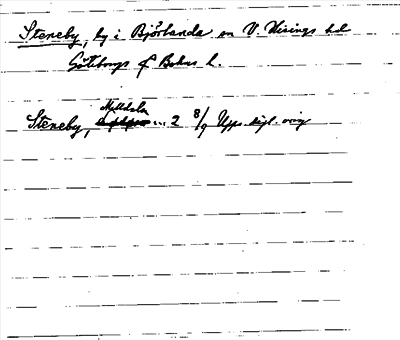 Steneby, by i Björlanda sn V. Hisings hd
Göteborgs o Bohus l.
Steneby, 2 8/9 Upps. digl. övrig